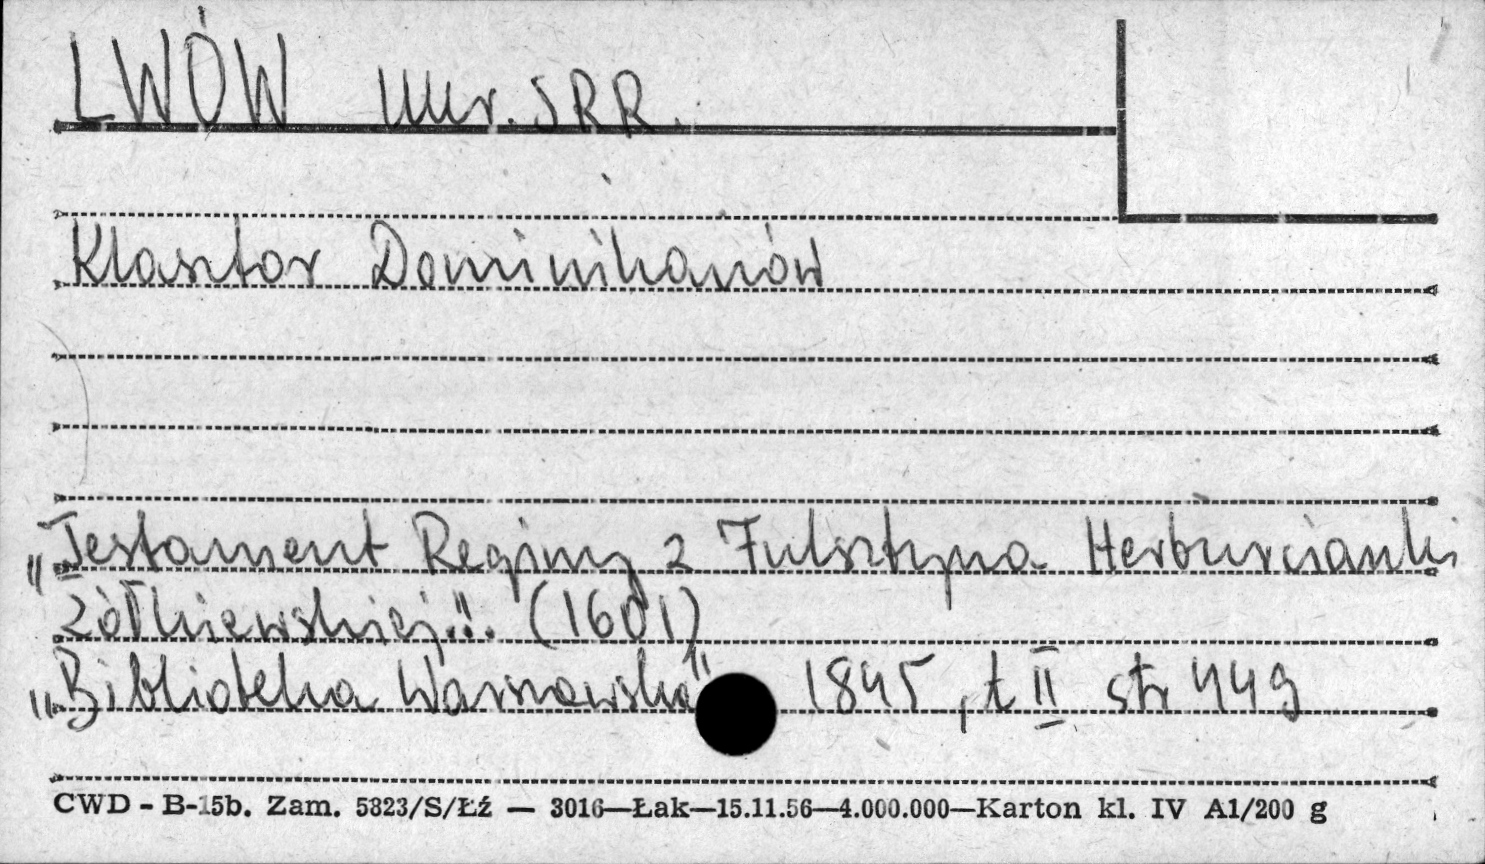 LWÓW Ukr. SRR.
Klasztor Dominikanów
„Testament Reginy z Fulsztyna Herburcianki
Żółkiewskiej..." (1601)
„Biblioteka Warszawska" 1845, t II str 449
CWD - B-15b. Zam. 5823/S/Łź — 3016—Łak—15.11.56—4.000.000—Karton kl. IV A1/200 g